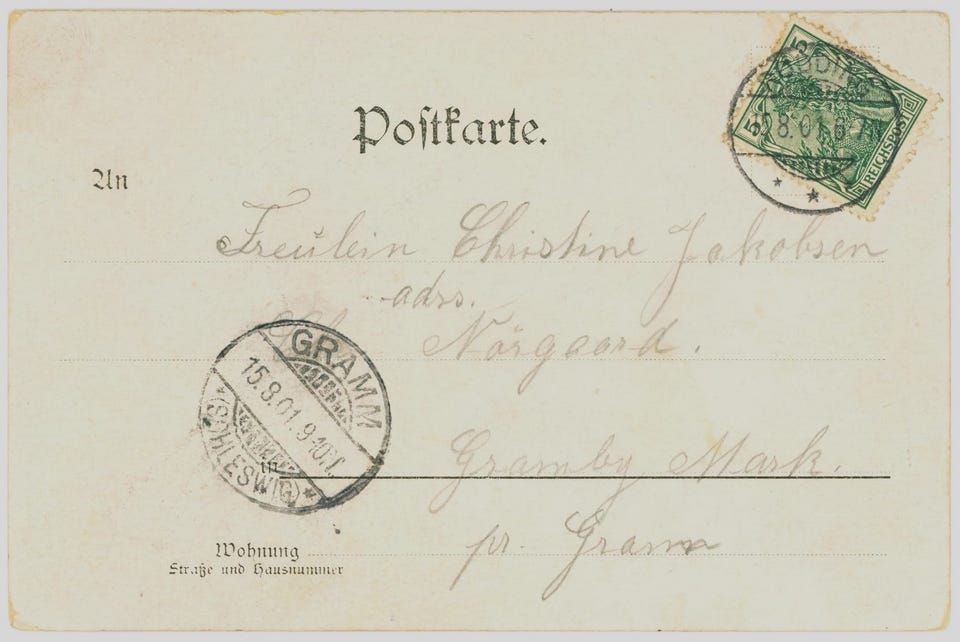 5 5
REICHSPOST
8.01. 6-7
Postkarte.
An
Freülein Christine Jakobsen
adrs.
Nörgaard.
GRAMM
15.8.01. 9-10V.
*(SCHLESWIG)*
in
Gramby Mark.
pr. Gramm
Wohnung
Straße und Hausnummer